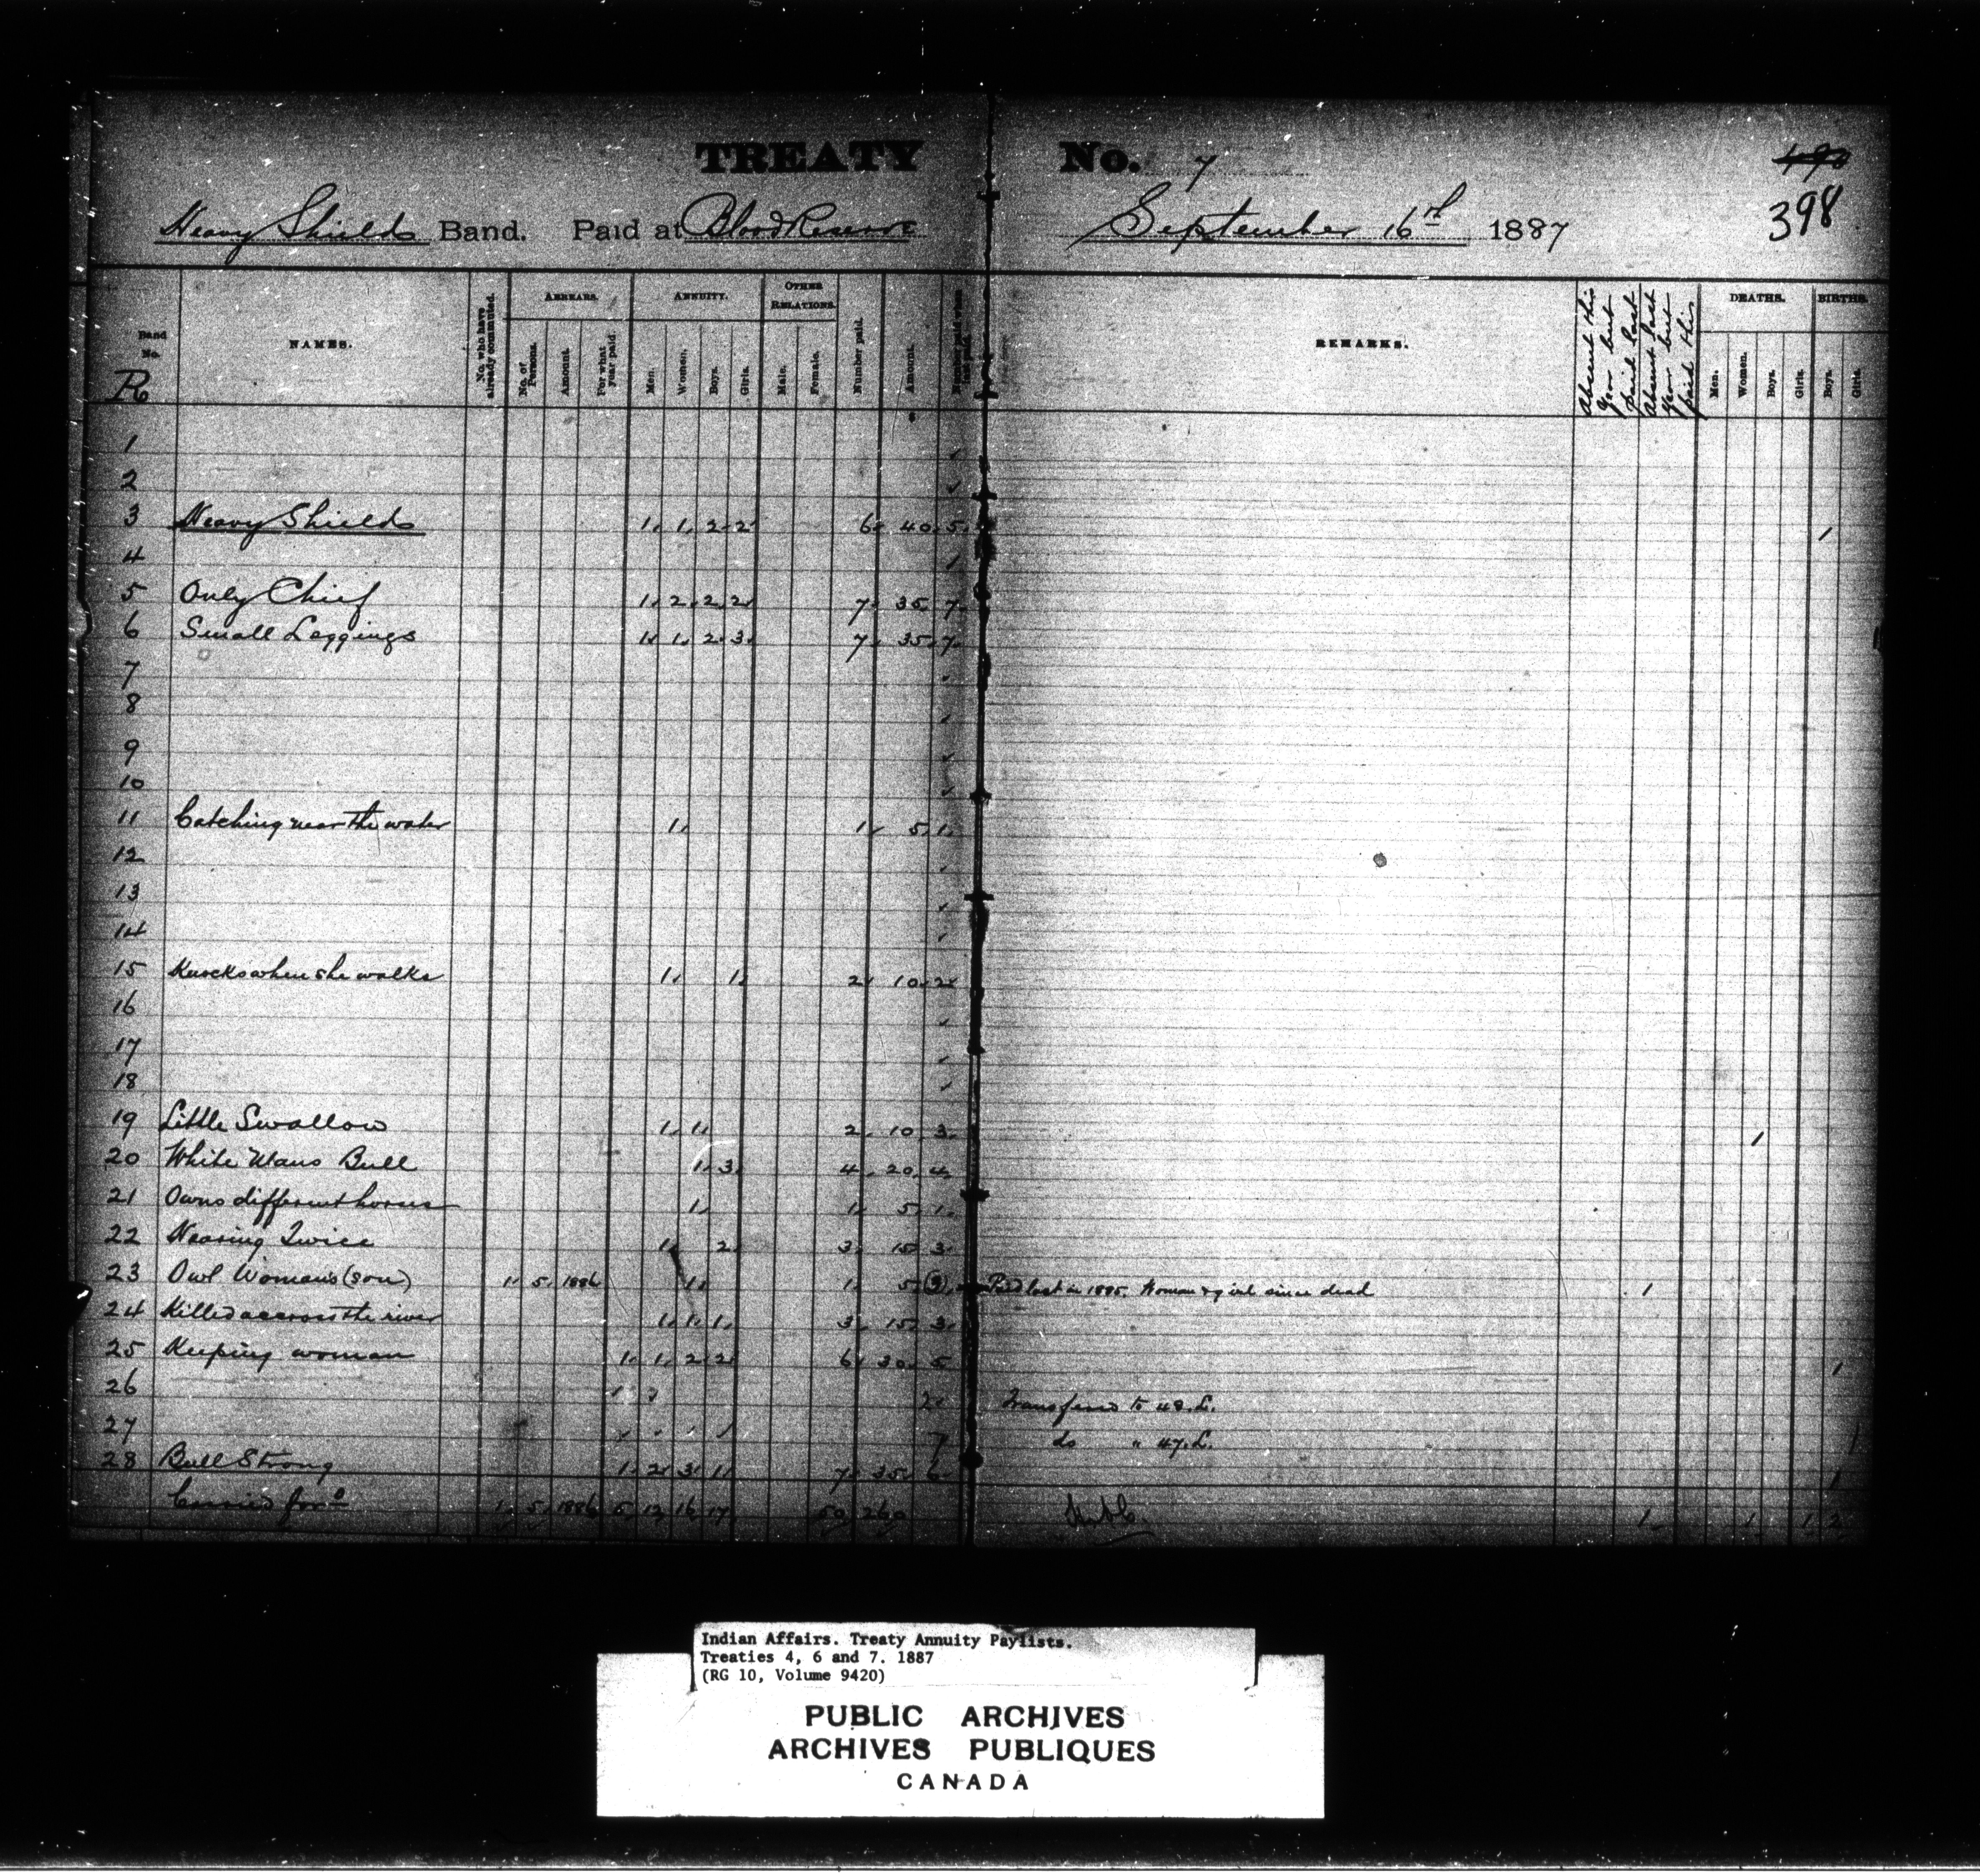 TREATY No. 7
490
398
Heavy Shields Band. Paid at Blood Reserve September 16th 1887
Band No. NAMES. No. who have already commuted. ARREARS. ANNUITY. OTHER RELATIONS. Number paid. Amount. REMARKS. Absent this Year but paid last Absent last Year but paid this DEATHS. BIRTHS.
No. of Persons. Amount. For what year paid Men. Women. Boys. Girls. Male. Female. Men. Women. Boys. Girls. Boys. Girls.
R
1
2
3 Heavy Shields 1 1 2 2 6 40 5 1
4
5 Only Chief 1 2 2 2 7 35 7
6 Small Leggings 1 1 2 3 7 35 7
7
8
9
10
11 Catching near the water 1 1 5 1
12
13
14
15 Knocks when she walks 1 1 2 10 2
16
17
18
19 Little Swallow 1 1 2 10 3 1
20 White Mans Bull 1 3 4 20 4
21 Owns different horses 1 1 5 1
22 Nearing Twice 1 2 3 15 3
23 Owl Womans (son) 1 5 1886 1 1 5 (3) Paid last in 1885. Woman & girl since dead 1
24 Killed accross the river 1 1 1 3 15 3
25 Keeping woman 1 1 2 2 6 30 5 1
26 2 Transferred to 48.L.
27 7 do " 47.L. 1
28 Bull Strong 1 2 3 1 7 35 6 1
Carried ford 1 5 1886 5 12 16 17 50 260 1 1 1 2
Indian Affairs. Treaty Annuity Paylists.
Treaties 4, 6 and 7. 1887
(RG 10, Volume 9420)
PUBLIC ARCHIVES
ARCHIVES PUBLIQUES
CANADA